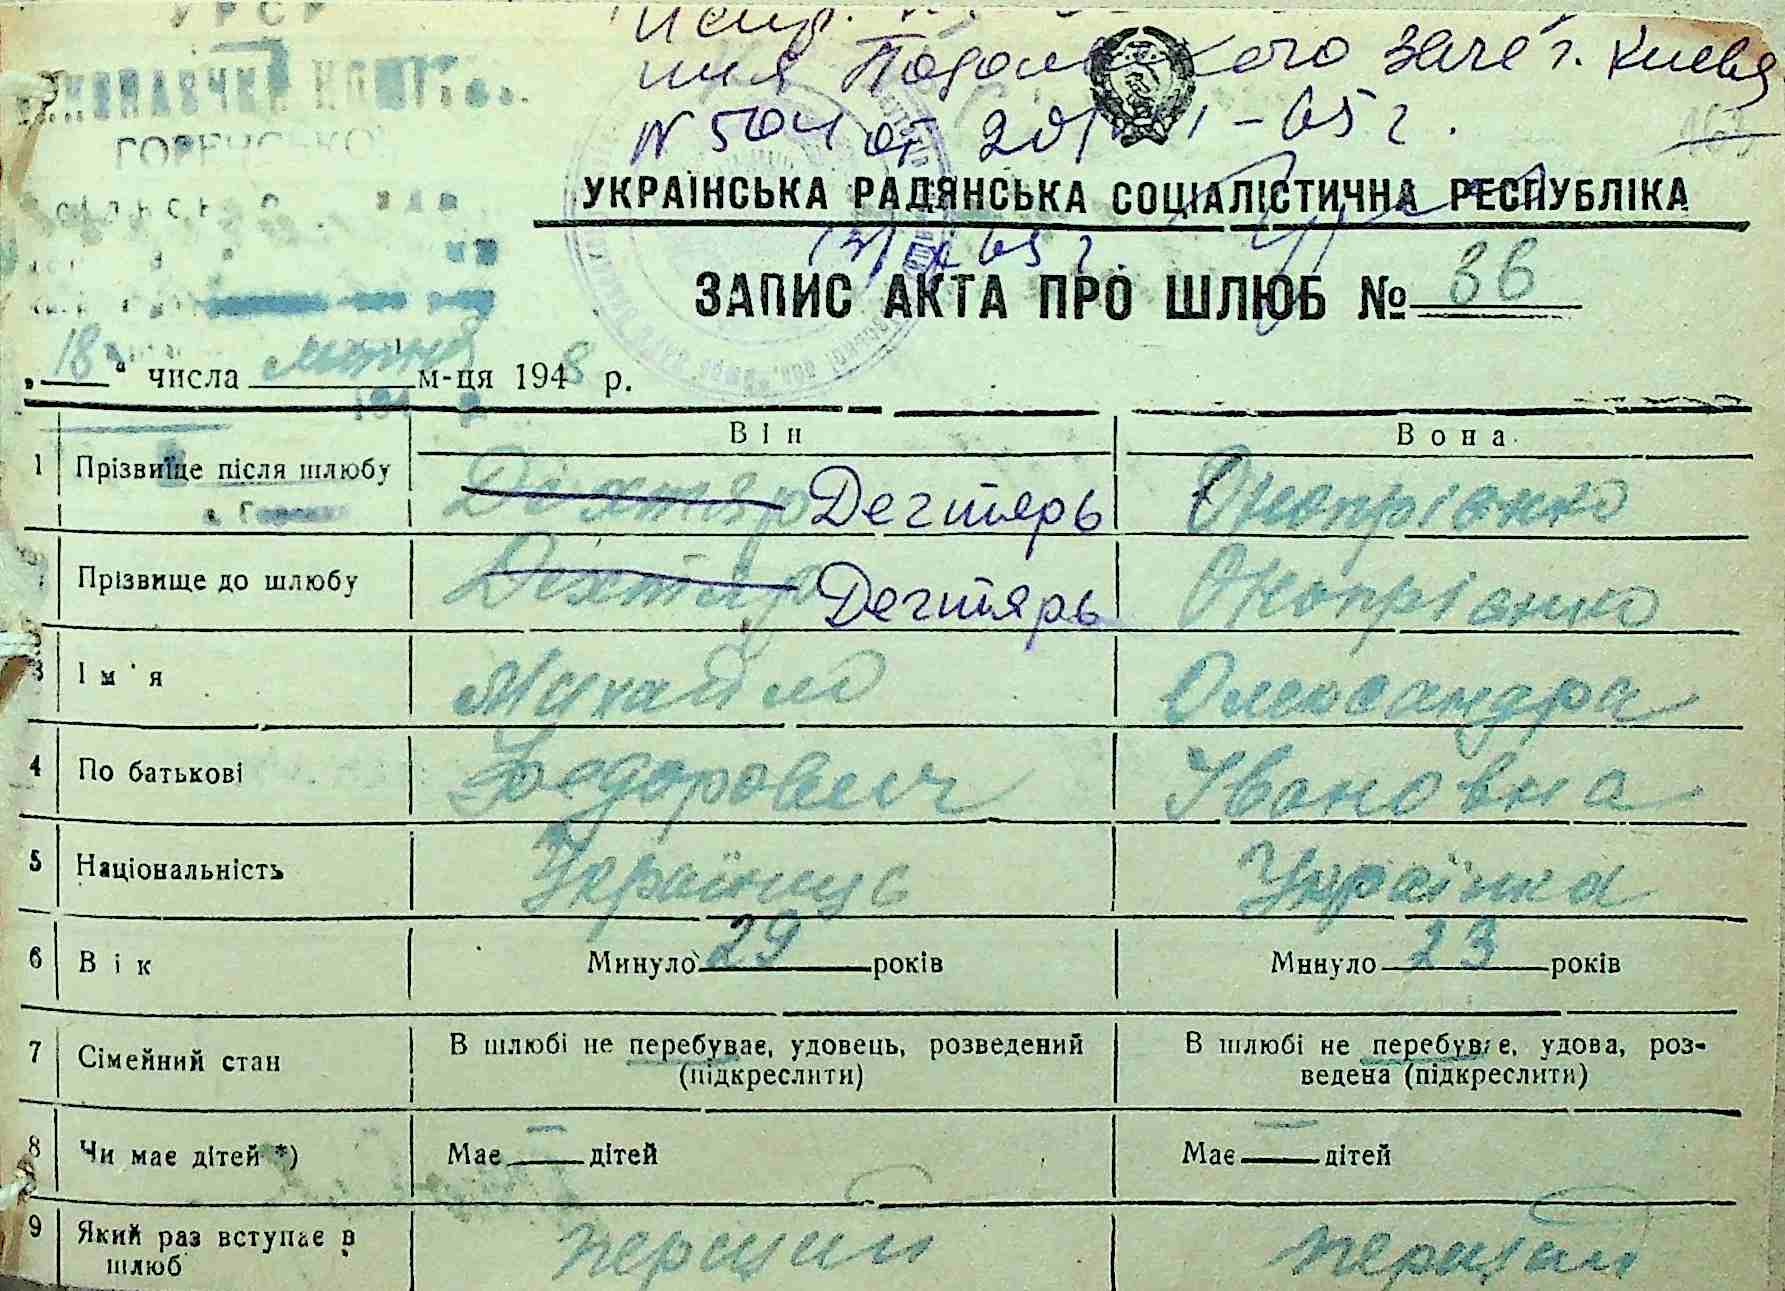 УРСР
ВИКОНАВЧИЙ КОМІТЕТ
ГОРЕНСЬКОЇ
Подольского Загс г. Киева
N 504 от 20/ -65 г.
УКРАЇНСЬКА РАДЯНСЬКА СОЦІАЛІСТИЧНА РЕСПУБЛІКА
ЗАПИС АКТА ПРО ШЛЮБ № 36
„18" числа м-ця 1948 р.
Він Вона
1 Прізвище після шлюбу Діхтяр Дегтярь Онопріенко
Прізвище до шлюбу Діхтяр Дегтярь Онопріенко
3 Ім'я Михайло Олександра
4 По батькові Федорович Івановна
5 Національність Українець Українка
6 Вік Минуло 29 років Минуло 23 років
7 Сімейний стан В шлюбі не перебуває, удовець, розведений (підкреслити) В шлюбі не перебуває, удова, роз-
ведена (підкреслити)
8 Чи має дітей *) Має — дітей Має — дітей
9 Який раз вступає в
шлюб перший перший